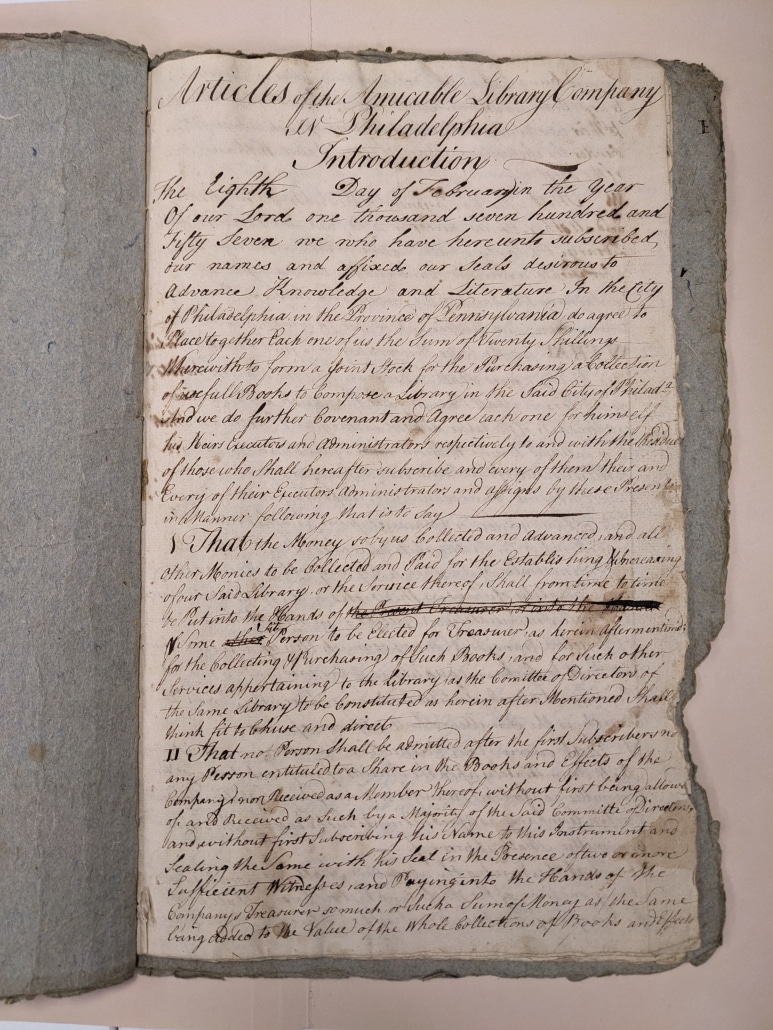 Articles of the Amicable Library Company
in Philadelphia
Introduction
The Eighth Day of February in the Year
Of our Lord one thousand seven hundred and
Fifty Seven we who have hereunto subscribed
our names and affixed our Seals desirous to
Advance Knowledge and Literature In the City
of Philadelphia in the Province of Pennsylvania do agree to
Place together Each one of us the Sum of Twenty Shillings
Wherewith to form a Joint Stock for the Purchasing a Collection
of usefull Books to Compose a Library in the Said City of Philada
And we do further Covenant and Agree each one for himself
his Heirs Executors and Administrators respectively to and with the Residue
of those who Shall hereafter subscribe and every of them their and
Every of their Executors Administrators and assigns by these Presents
in Manner following that is to Say
I That the Money so by us Collected and Advanced, and all
Other Monies to be Collected and Paid for the Establishing & Increasing
of our Said Library, or the Service thereof, Shall from time to time
be Put into the Hands of the Present Treasurer or into the
Some fit Person to be Elected for Treasurer, as herein aftermentiond
for the Collecting & Purchasing of Such Books, and for Such other
Services appertaining to the Library, as the Comittee of Directors of
the Same Library to be Constituted as herein after Mentioned Shall
think fit to Chuse and direct
II That no Person Shall be admitted after the first Subscribers no
any Person entituled to a Share in the Books and Effects of the
Company, nor Received as a Member thereof, without first being allow
of, and Received as Such by a Majority of the Said Committe of Directors
and without first Subscribing his Name to this Instrument and
Sealing the Same with his Seal in the Presence of two or more
Sufficient Witnesses, and Paying into the Hands of the
Companys Treasurer so much or Such a Sum of Money as the Same
being added to the Value of the Whole Collections of Books and Effects